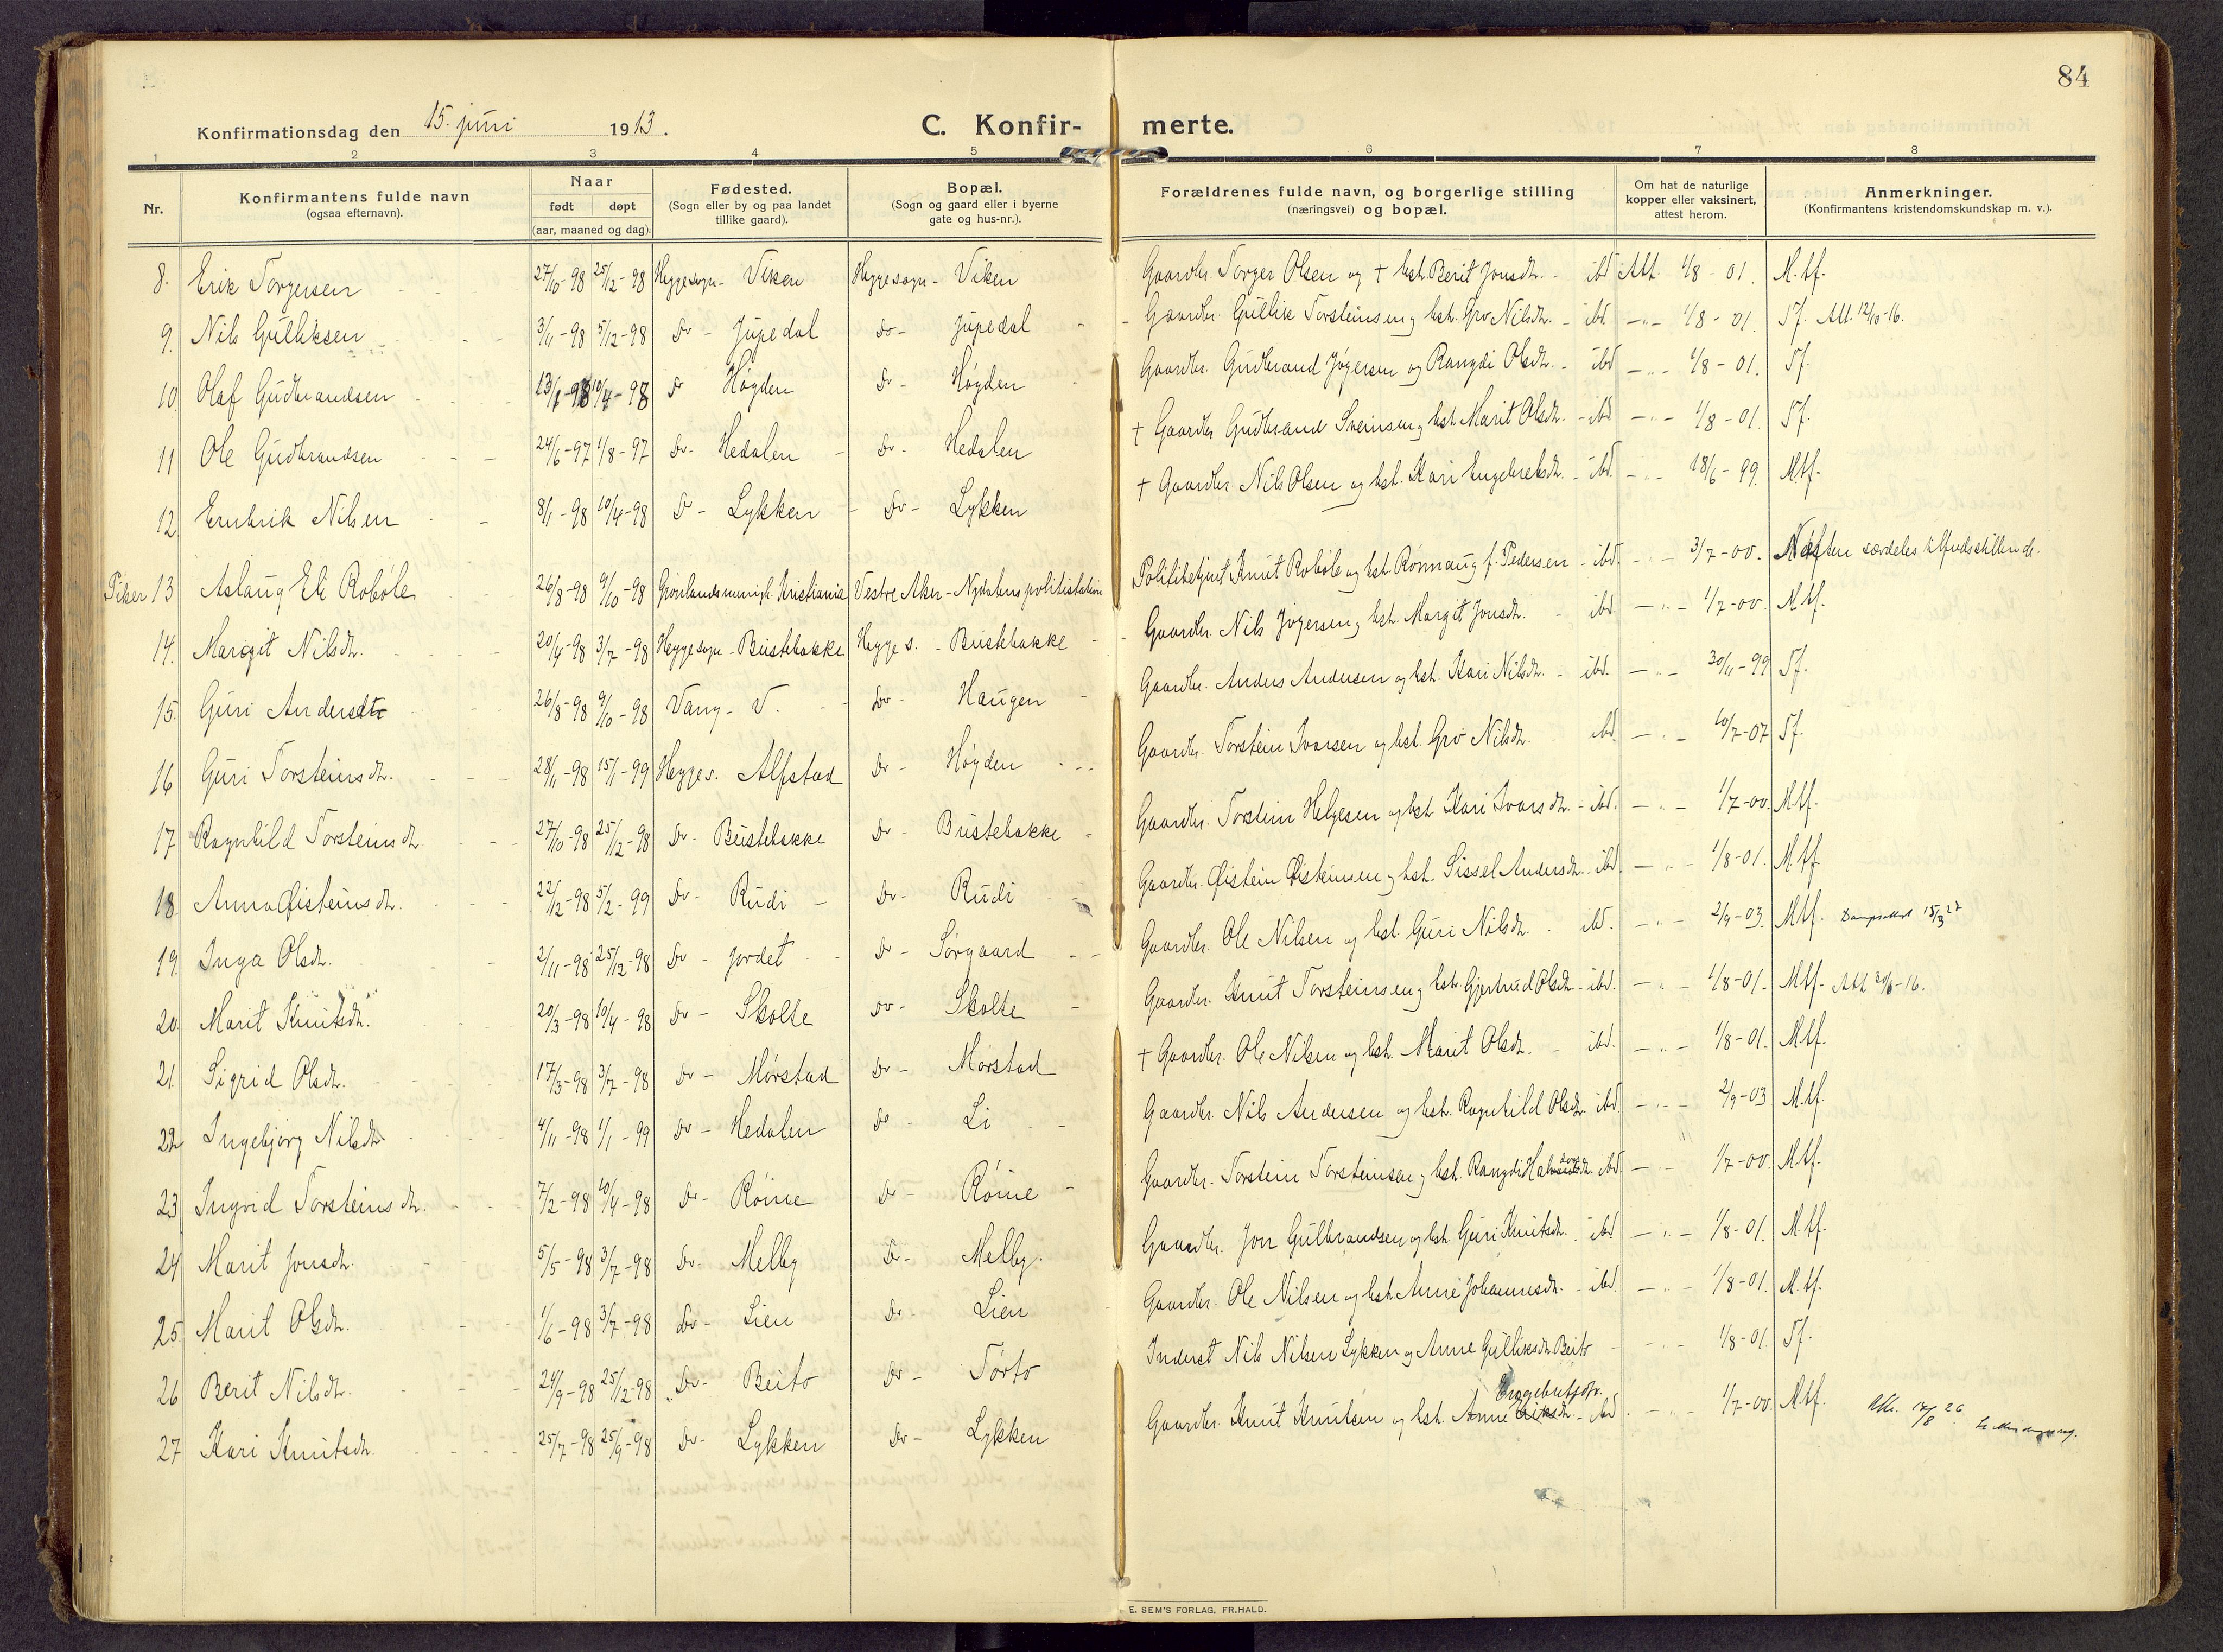 84
Konfirmationsdag den 15. juni 1913.
C. Konfirmerte.
1 2 3 4 5 6 7 8
Nr. Konfirmantens fulde navn (ogsaa efternavn). Naar født døpt (aar, maaned og dag). Fødested. (Sogn eller by og paa landet tillike gaard). Bopæl. (Sogn og gaard eller i byerne gate og hus-nr.). Forældrenes fulde navn, og borgerlige stilling (næringsvei) og bopæl. Om hat de naturlige kopper eller vaksinert, attest herom. Anmerkninger. (Konfirmantens kristendomskundskap m. v.).
8. Erik Torgersen 27/10-98 25/12-98 Heggesogn - Viken Heggesogn - Viken Gaardbr. Torger Olsen og + hst. Berit Jonsdtr. - ibd Att. 1/8-01. M.tf.
9. Nils Gulliksen 3/11-98 5/12-98 Do - Jupedal Do - Jupedal Gaardbr. Gullik Torsteinsen og hst. Gro Nilsdtr. - ibd. -"- 1/8-01. T.f. Att. 12/10-16.
10 Olaf Gudbrandsen 13/1-98 10/4-98 Do Høgden Do - Høgden Gaardbr. Gudbrand Jøgersen og Rangdi Olsdtr. - ibd -"- 1/8-01. T.f.
11 Ole Gudbrandsen 24/6-97 1/8-97 Do - Hedalen Do - Hedalen + Gaardbr. Gudbrand Sveinsen og hst. Marit Olsdtr. - ibd -"- 1/8-01. T.f.
12 Embrik Nilsen 8/1-98 10/4-98 Do - Lykken Do - Lykken + Gaardbr. Nils Olsen og hst. Kari Engebretsdtr. - ibd. -"- 18/6-99. M.tf.
Piker 13 Aslaug Eli Robøle 26/8-98 9/10-98 Grønlands menigh. Kristiania Vestre Aker - Nydalens politistation Politibetjent Knut Robøle og hst. Rønnaug f. Pedersen - ibd. -"- 3/7-00. Næsten særdeles tilfredsstillende.
14. Margit Nilsdtr. 20/4-98 3/7-98 Heggesogn - Bustebakke Hegge s. - Bustebakke Gaardbr. Nils Jøgersen og hst. Margit Jonsdtr. - ibd. -"- 1/7-00. M.tf.
15. Guri Andersdtr 26/8-98 9/10-98 Vang - V. Do - Haugen Gaardbr. Anders Andersen og hst. Kari Nilsdtr. - ibd. -"- 30/11-99 T.f.
16 Guri Torsteinsdtr. 28/11-98 15/1-99 Hegges. Alfstad Do - Høgden Gaardbr. Torstein Ivarsen og hst. Gro Nilsdtr. ibd. -"- 10/7-07 T.f.
17 Ragnhild Torsteinsdtr 27/10-98 25/12-98 Do - Bustebakke Do - Bustebakke Gaardbr. Torstein Helgesen og hst. Kari Ivarsdtr. - ibd. -"- 1/7-00. M.tf.
18. Anna Øisteinsdtr. 22/12-98 5/2-99 Do - Rudi Do - Rudi Gaardbr. Øistein Øisteinsen og hst. Sissel Andersdtr. ibd. -"- 1/8-01. M.tf.
19. Inga Olsdtr. 2/11-98 25/12-98 Do - Jordet Do - Sørgaard Gaardbr. Ole Nilsen og hst. Guri Nilsdtr. ibd. -"- 2/9-03. M.tf. Daapsattest 15/3 27
20 Marit Knutsdtr. 20/3-98 10/4-98 Do - Skolte Do - Skolte Gaardbr. Knut Torsteinsen og hst. Gjertrud Olsdtr - ibd. -"- 1/8-01. M.tf. Att. 20/6-16.
21. Sigrid Olsdtr. 17/3-98 3/7-98 Do - Mørstad Do - Mørstad + Gaardbr. Ole Nilsen og hst. Marit Olsdtr. - ibd. -"- 1/8-01. M.tf.
22 Ingebjørg Nilsdtr. 4/11-98 1/1-99 Do - Hedalen Do - Li Gaardbr. Nils Andersen og hst. Ragnhild Olsdtr. ibd -"- 2/9-03 M.tf.
23 Ingrid Torsteinsdtr. 7/2-98 10/4-98 Do - Röine Do - Röine Gaardbr. Torstein Torsteinsen og hst. Rangdi Halvorsdtr. ibd -"- 1/7-00. M.tf.
24 Marit Jonsdtr. 5/5-98 3/7-98 Do - Melby Do - Melby. Gaardbr. Jon Gulbrandsen og hst. Guri Knutsdtr. ibd -"- 1/8-01. M.tf.
25 Marit Olsdtr. 1/6-98 3/7-98 Do - Lien Do Lien Gaardbr. Ole Nilsen og hst. Anne Johannesdtr. - ibd. -"- 1/8-01. M.tf.
26 Berit Nilsdtr. 24/9-98 25/12-98 Do - Beito Do - Tørto Inderst Nils Nilsen Lykken og Anne Gulliksdtr. Beito -"- 1/8-01. T.f.
27 Kari Knutsdtr. 25/7-98 25/9-98 Do - Lykken Do - Lykken Gaardbr. Knut Knutsen og hst. Anne Engebretsdtr. - ibd -"- 1/7-00. M.tf. Att. 17/8 26
E. SEM'S FORLAG, FR.HALD.